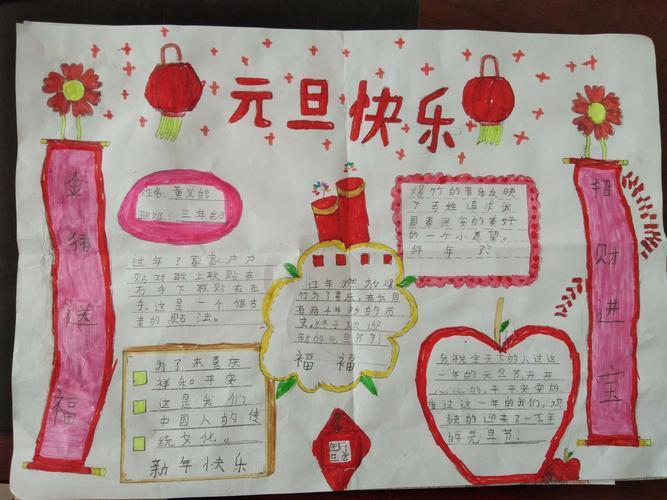 元旦快乐
金猪送福
姓名:黄义皓
班级:三年级
爆竹的音乐反映
了百姓追求我
国泰民安的美好
的一个小愿望。
好年了
招财进宝
过年了家家户户
贴对联上联贴在
右手下联贴在左
手。这是一个很古
老的贴法。
过年燃放爆
竹为了喜庆,在我国
有两千年多的历
史。终于欢迎
新的元旦节了!
福 福
为了来喜庆
祥和平安
这是我们
中国人的传
统文化。
新年快乐
我祝全天下的人过这
一年的元旦节,开开
心心的,平平安安的,
度过这一年的我们,欢
快的迎来了一下年
的元旦节!